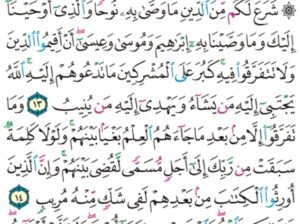 ۞ شَرَعَ لَكُم مِّنَ ٱلدِّينِ مَا وَصَّىٰ بِهِۦ نُوحًا وَٱلَّذِىٓ أَوْحَيْنَآ
إِلَيْكَ وَمَا وَصَّيْنَا بِهِۦٓ إِبْرَٰهِيمَ وَمُوسَىٰ وَعِيسَىٰٓ أَنْ أَقِيمُوا۟ ٱلدِّينَ
وَلَا تَتَفَرَّقُوا۟ فِيهِ كَبُرَ عَلَى ٱلْمُشْرِكِينَ مَا تَدْعُوهُمْ إِلَيْهِ ٱللَّهُ
يَجْتَبِىٓ إِلَيْهِ مَن يَشَآءُ وَيَهْدِىٓ إِلَيْهِ مَن يُنِيبُ ١٣ وَمَا
تَفَرَّقُوٓا۟ إِلَّا مِنۢ بَعْدِ مَا جَآءَهُمُ ٱلْعِلْمُ بَغْيًۢا بَيْنَهُمْ وَلَوْلَا كَلِمَةٌ
سَبَقَتْ مِن رَّبِّكَ إِلَىٰٓ أَجَلٍ مُّسَمًّى لَّقُضِىَ بَيْنَهُمْ وَإِنَّ ٱلَّذِينَ
أُورِثُوا۟ ٱلْكِتَٰبَ مِنۢ بَعْدِهِمْ لَفِى شَكٍّ مِّنْهُ مُرِيبٍ ١٤